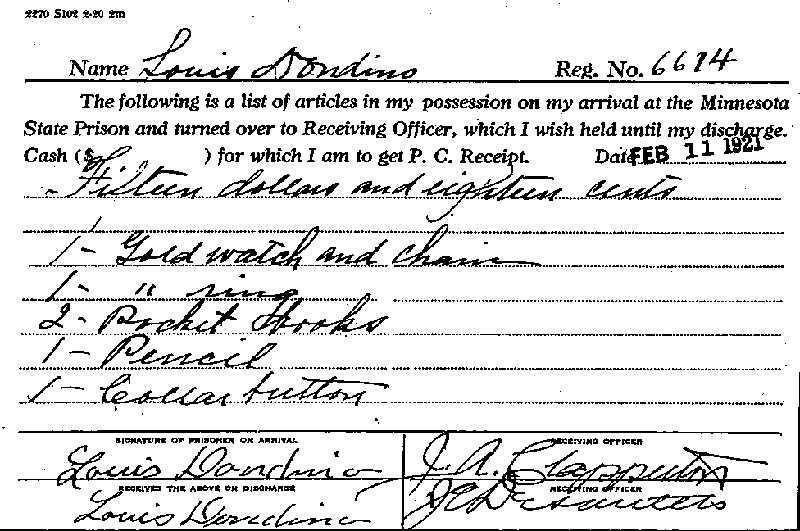 2270 S102 2-20 2m
Name Louis Dondino Reg. No. 6614
The following is a list of articles in my possession on my arrival at the Minnesota
State Prison and turned over to Receiving Officer, which I wish held until my discharge.
Cash ($ ) for which I am to get P. C. Receipt. Date FEB 11 1921
Fifteen dollars and eighteen cents
1 - Gold watch and chain
1 - " ring
2 - Pocket Books
1 - Pencil
1 - Collar button
SIGNATURE OF PRISONER ON ARRIVAL RECEIVING OFFICER
Louis Dondino J. A. Clapperton
RECEIVED THE ABOVE ON DISCHARGE RECEIVING OFFICER
Louis Dondino